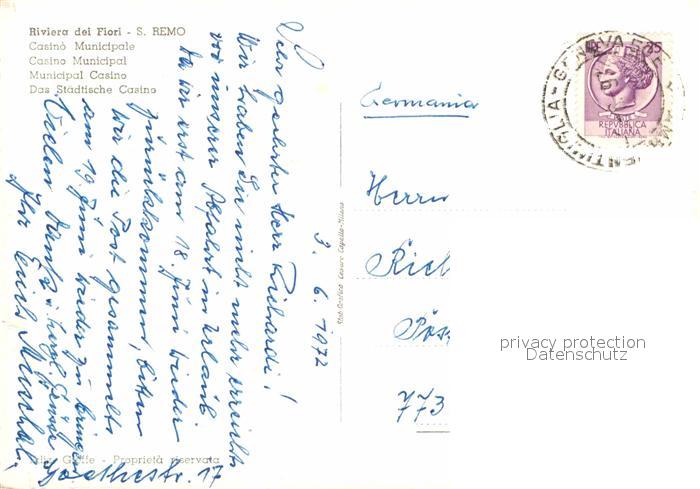 Riviera dei Fiori - S. REMO
Casinò Municipale
Casino Municipal
Municipal Casino
Das Städtische Casino
3. 6. 1972
Sehr geehrter Herr Richardi!
Wir haben Sie nicht mehr erreicht
vor unserer Abfahrt in Urlaub.
Da wir erst am 18. Juni wieder
zurückkommen, bitten
wir die Post gesammelt
am 19. Juni wieder zu bringen
Vielen Dank u. herzl. Grüsse
Ihr
Goethestr. 17
Proprietà riservata
Stab. Grafico Cesare Capello - Milano
Germania
Herrn
773
REPUBBLICA
ITALIANA
privacy protection
Datenschutz